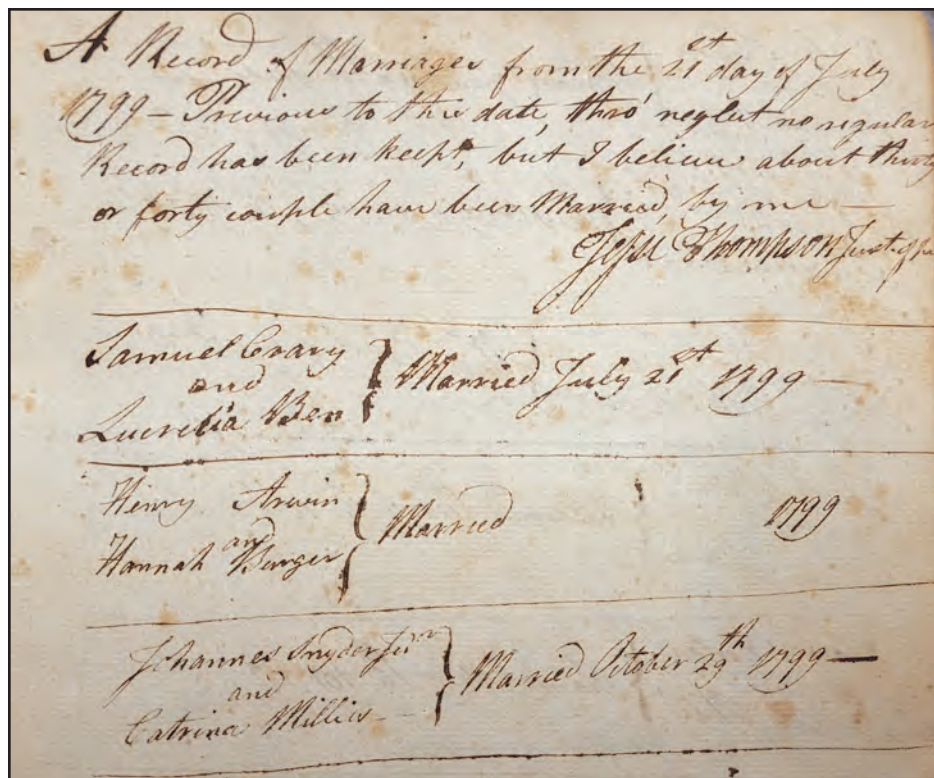 A Record of Marriages from the 21st day of July
1799 – Previous to this date, thro' neglect no regular
Record has been kept, but I believe about thirty
or forty couple have been Married, by me —
Jesse Thompson Just. of
Samuel Crary
and
Lucretia Ben
Married July 21st 1799 —
Henry Arwin
and
Hannah Burger
Married 1799
Johannes Snyder Junr
and
Catrina Millias
Married October 29th 1799 —